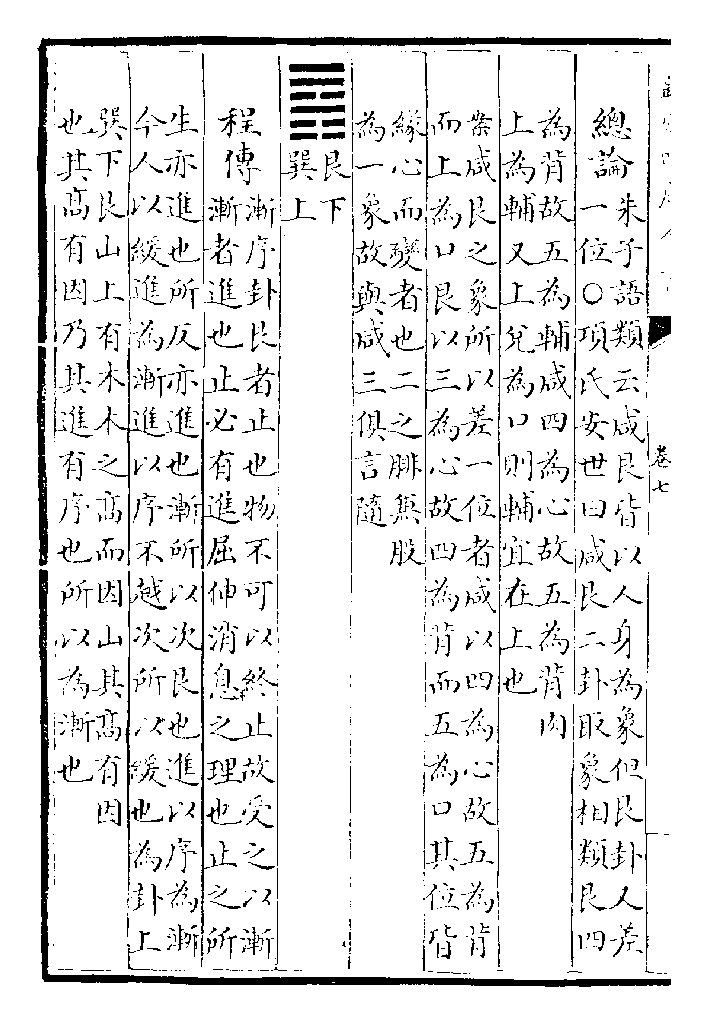 卷七
總論
朱子語類云咸艮皆以人身為象但艮卦人差
一位○項氏安世曰咸艮二卦取象相類艮四
為背故五為輔咸四為心故五為背肉
上為輔又上兌為口則輔宜在上也
案咸艮之象所以差一位者咸以四為心故五為背
而上為口艮以三為心故四為背而五為口其位皆
緣心而變者也二之腓兼股
為一象故與咸三俱言隨
艮下
巽上
程傳
漸序卦艮者止也物不可以終止故受之以漸
漸者進也止必有進屈伸消息之理也止之所
生亦進也所反亦進也漸所以次艮也進以序為漸
今人以緩進為漸進以序不越次所以緩也為卦上
巽下艮山上有木木之高而因山其高有因
也其高有因乃其進有序也所以為漸也